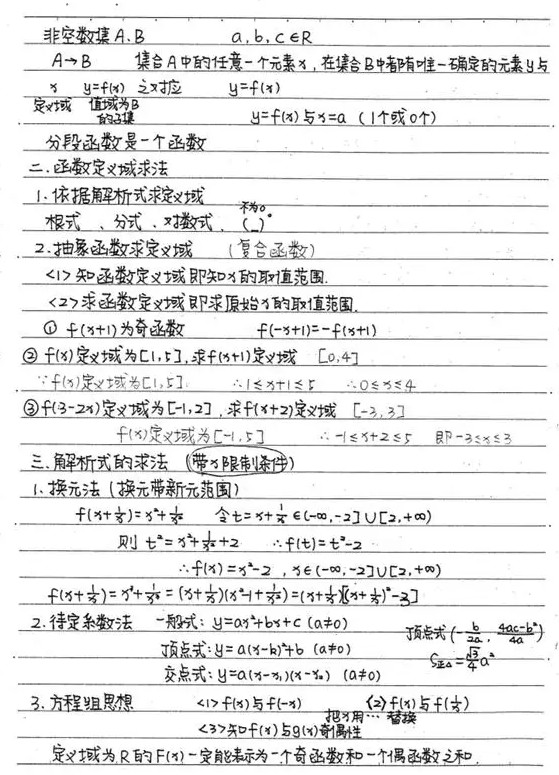 非空数集A、B a,b,c∈R
A→B 集合A中的任意一个元素x,在集合B中都有唯一确定的元素y与
x y=f(x) 之对应 y=f(x)
定义域 值域为B的子集 y=f(x)与x=a (1个或0个)
分段函数是一个函数
二.函数定义域求法
1.依据解析式求定义域
根式、分式、对数式、(_)⁰ 不为0
2.抽象函数求定义域 (复合函数)
<1>知函数定义域即知x的取值范围.
<2>求函数定义域即求原始x的取值范围.
① f(x+1)为奇函数 f(-x+1)=-f(x+1)
② f(x)定义域为[1,5],求f(x+1)定义域 [0,4]
∵f(x)定义域为[1,5] ∴1≤x+1≤5 ∴0≤x≤4
③f(3-2x)定义域为[-1,2],求f(x+2)定义域 [-3,3]
f(x)定义域为[-1,5] ∴-1≤x+2≤5 即-3≤x≤3
三.解析式的求法 (带x限制条件)
1.换元法(换元带新元范围)
f(x+1/x)=x²+1/x² 令t=x+1/x∈(-∞,-2]∪[2,+∞)
则 t²=x²+1/x²+2 ∴f(t)=t²-2
∴f(x)=x²-2,x∈(-∞,-2]∪[2,+∞)
f(x+1/x)=x³+1/x³=(x+1/x)(x²-1+1/x²)=(x+1/x)[(x+1/x)²-3]
2.待定系数法 一般式:y=ax²+bx+c (a≠0) 顶点式(-b/2a, 4ac-b²/4a)
顶点式:y=a(x-k)²+b (a≠0) S正△=√3/4 a²
交点式:y=a(x-x₁)(x-x₂) (a≠0)
3.方程组思想 <1>f(x)与f(-x) <2>f(x)与f(1/x)
把x用…替换
<3>知f(x)与g(x)奇偶性
定义域为R的F(x)一定能表示为一个奇函数和一个偶函数之和.